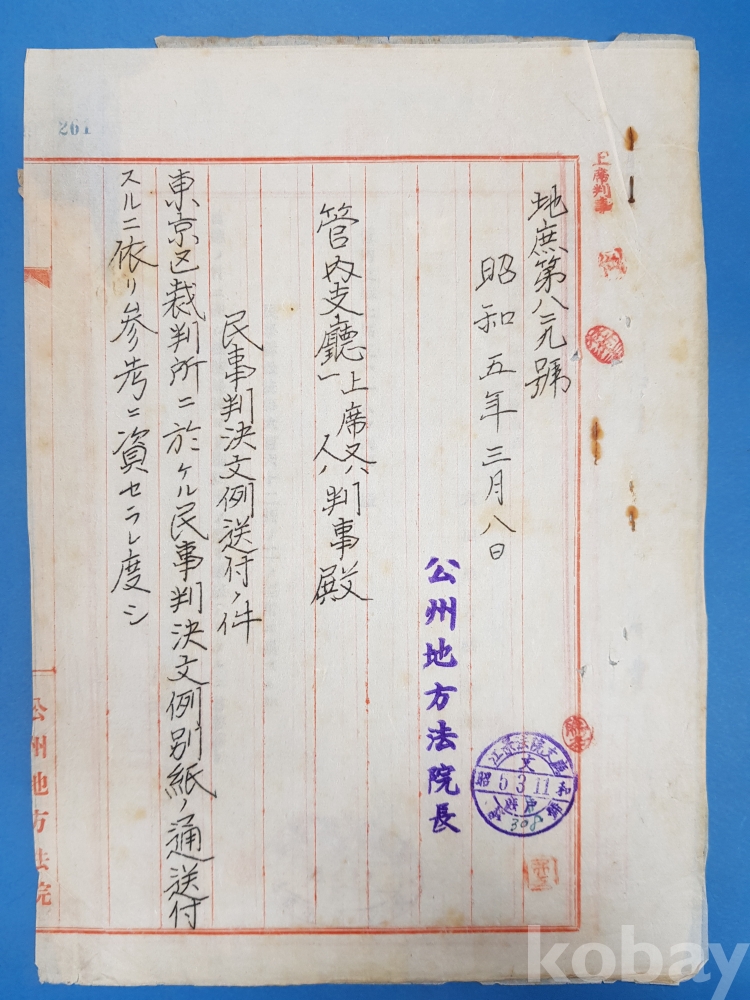 261
上席判事
地庶第八二九號
昭和五年三月八日
公州地方法院長
管內支廳上席又ハ一人判事殿
民事判決文例送付ノ件
東京区裁判所ニ於ケル民事判決文例別紙ノ通送付
スルニ依リ参考ニ資セラレ度シ
江景法院支廳
昭和
5.3.11
308
公州地方法院
kobay